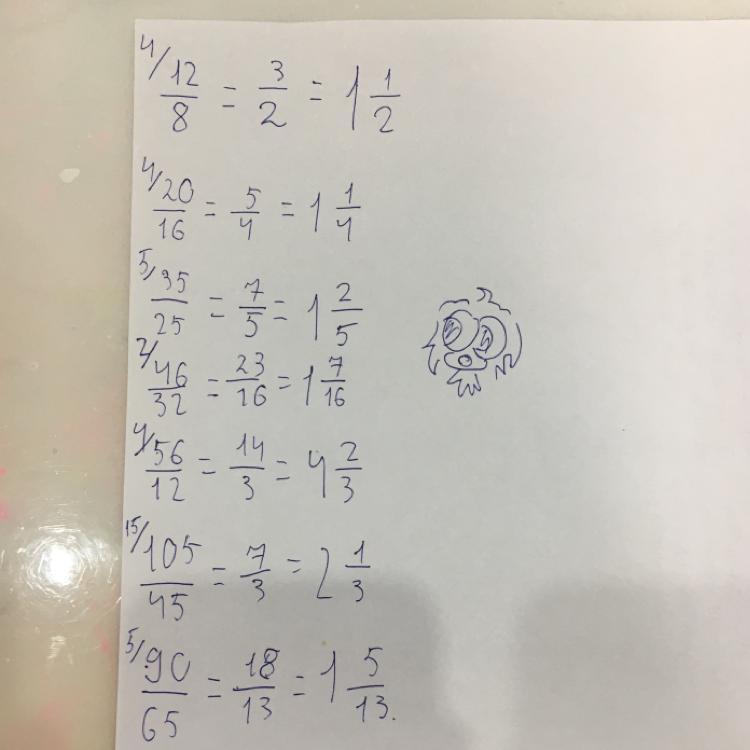 4/ 12/8 = 3/2 = 1 1/2
4/ 20/16 = 5/4 = 1 1/4
5/ 35/25 = 7/5 = 1 2/5
2/ 46/32 = 23/16 = 1 7/16
4/ 56/12 = 14/3 = 4 2/3
15/ 105/45 = 7/3 = 2 1/3
5/ 90/65 = 18/13 = 1 5/13.